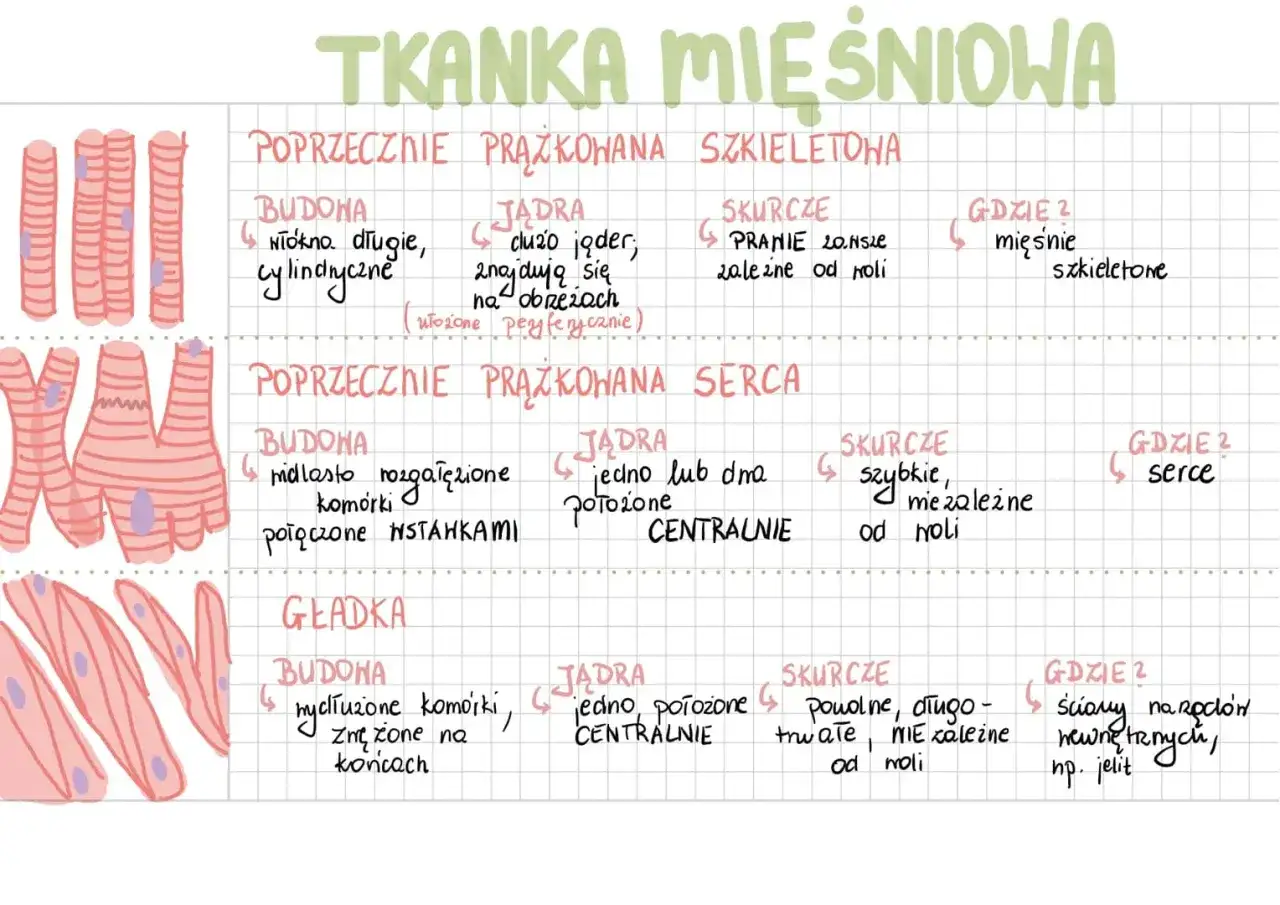 TKANKA MIĘŚNIOWA
POPRZECZNIE PRĄŻKOWANA SZKIELETOWA
BUDOWA
włókna długie,
cylindryczne
JĄDRA
dużo jąder,
znajdują się
na obrzeżach
(ułożone peryferycznie)
SKURCZE
PRAWIE zawsze
zależne od woli
GDZIE?
mięśnie
szkieletowe
POPRZECZNIE PRĄŻKOWANA SERCA
BUDOWA
widlasto rozgałęzione
komórki
połączone WSTAWKAMI
JĄDRA
jedno lub dwa
położone
CENTRALNIE
SKURCZE
szybkie,
niezależne
od woli
GDZIE?
serce
GŁADKA
BUDOWA
wydłużone komórki,
zwężone na
końcach
JĄDRA
jedno, położone
CENTRALNIE
SKURCZE
powolne, długo-
trwałe, NIEzależne
od woli
GDZIE?
ściany narządów
wewnętrznych,
np. jelit